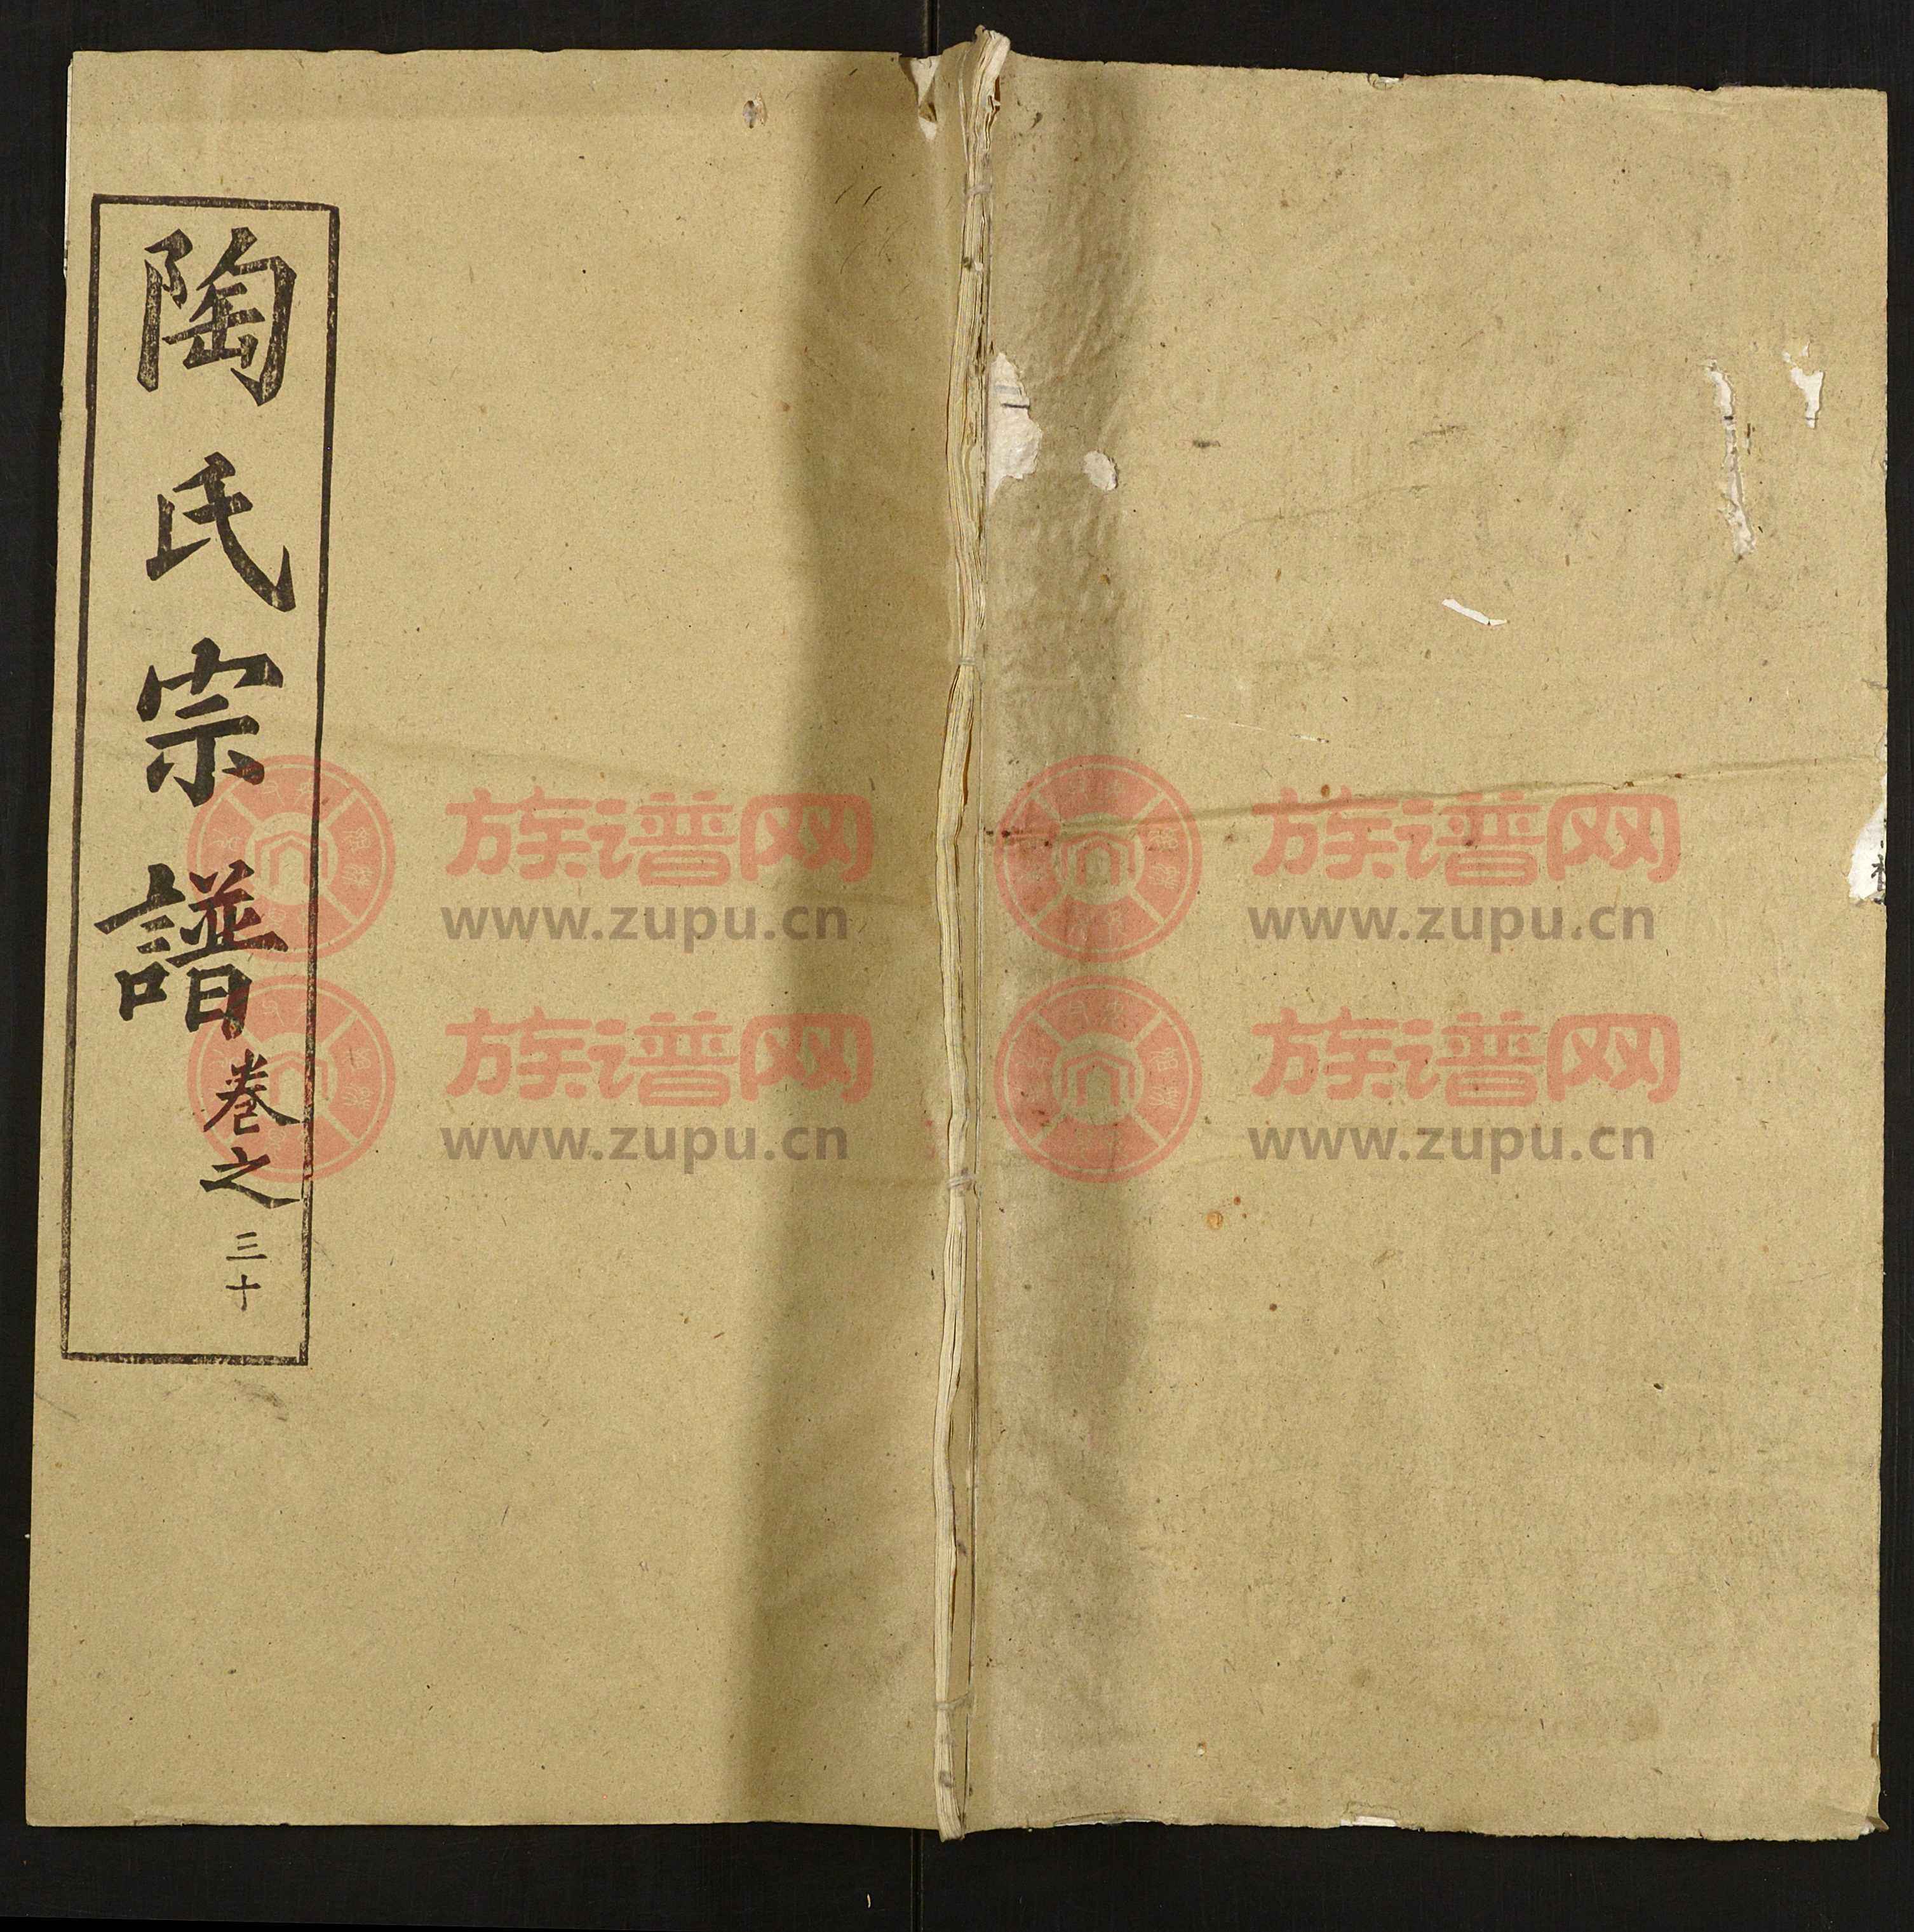 陶氏宗譜卷之三十
族谱网 族谱网
www.zupu.cn www.zupu.cn
族谱网 族谱网
www.zupu.cn www.zupu.cn